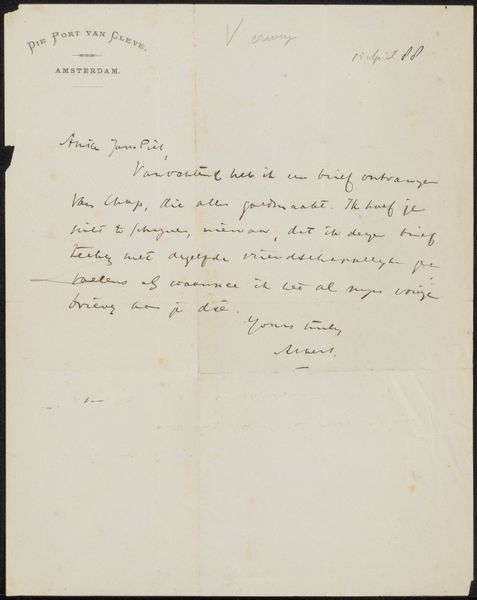 DIE PORT VAN CLEVE.
AMSTERDAM.
Verwey
15 April 88
Amice Jan Piet,
Vanochtend heb ik een brief ontvangen
van Chap, die alles goedmaakt. Ik hoef je
niet te, niewaar, dat ik deze brief
teeken met dezelfde vriendschappelijke ge-
voelens als waarmee ik het al mijn vorige
brieven aan je deê.
Yours truly
Albert.